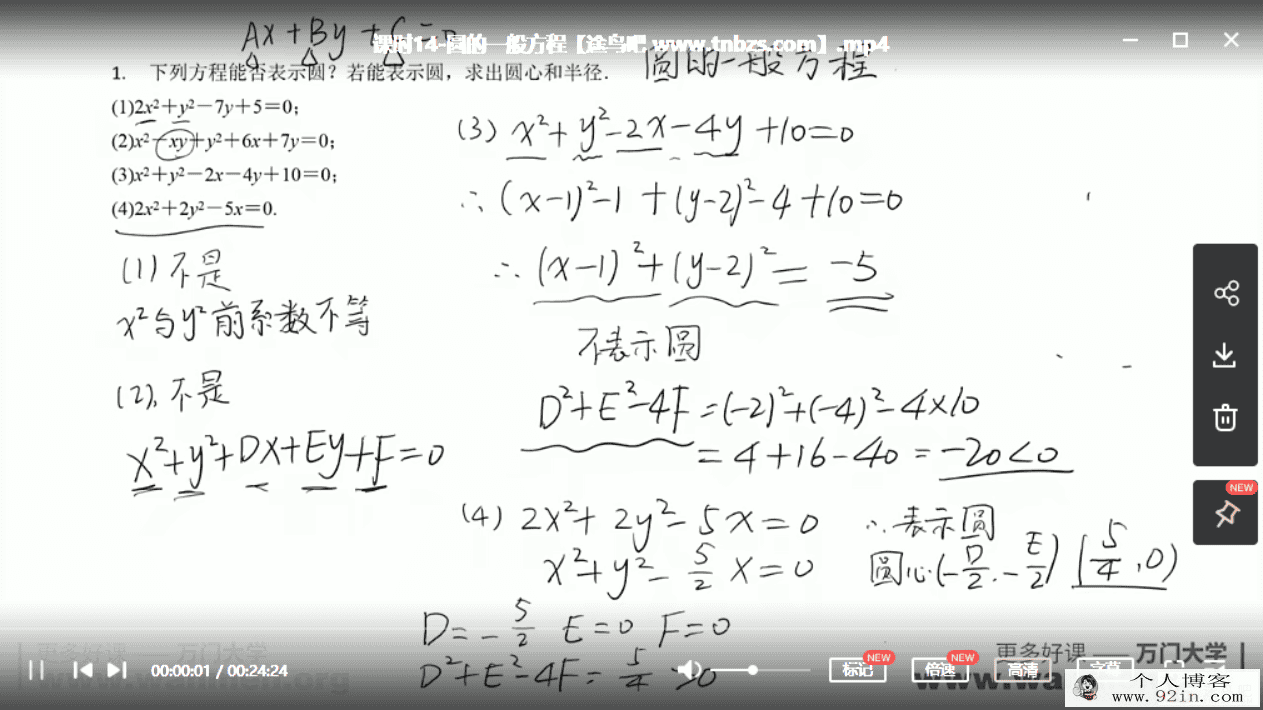 Ax+By+C=0
课时14-圆的一般方程【途鸟吧 www.tnbzs.com】.mp4
圆的一般方程
1. 下列方程能否表示圆？若能表示圆，求出圆心和半径．
(1)2x²＋y²－7y＋5＝0；
(2)x²－xy＋y²＋6x＋7y＝0；
(3)x²＋y²－2x－4y＋10＝0；
(4)2x²＋2y²－5x＝0.
(1)不是
x²与y²前系数不等
(2)、不是
x²+y²+Dx+Ey+F=0
(3) x²+y²-2x-4y+10=0
∴(x-1)²-1+(y-2)²-4+10=0
∴(x-1)²+(y-2)²=-5
不表示圆
D²+E²-4F=(-2)²+(-4)²-4×10
=4+16-40=-20<0
(4) 2x²+2y²-5x=0
x²+y²-5/2 x=0
D=-5/2 E=0 F=0
D²+E²-4F=5/4>0
∴表示圆
圆心(-D/2,-E/2) (5/4,0)
NEW
更多好课 —— 万门大学
更多好课 —— 万门大学
00:00:01 / 00:24:24
标记
NEW
倍速
NEW
高清
字幕
www.wa
个人博客
www.92in.com